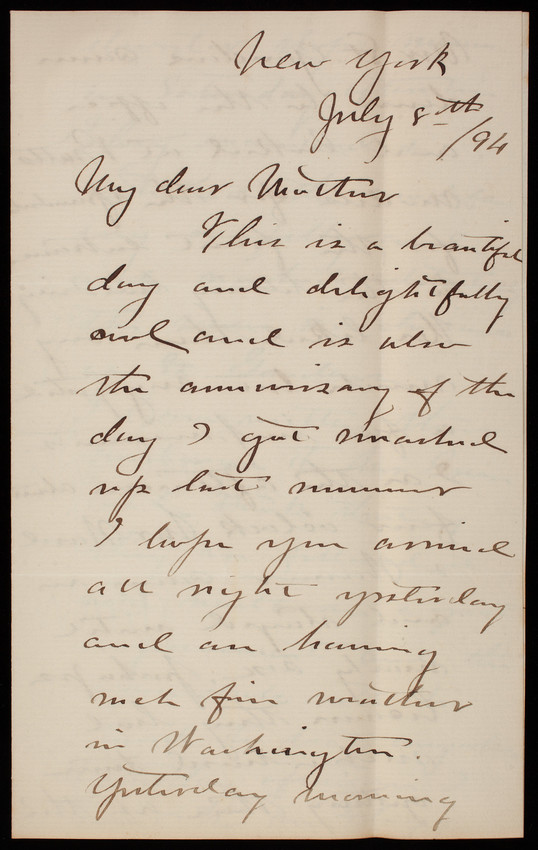 New York
July 8th
/94
My dear Mother
This is a beautiful
day and delightfully
cool and is also
the anniversary of the
day I got smashed
up last summer
I hope you arrived
all right yesterday
and are having
such fine weather
in Washington.
Yesterday morning